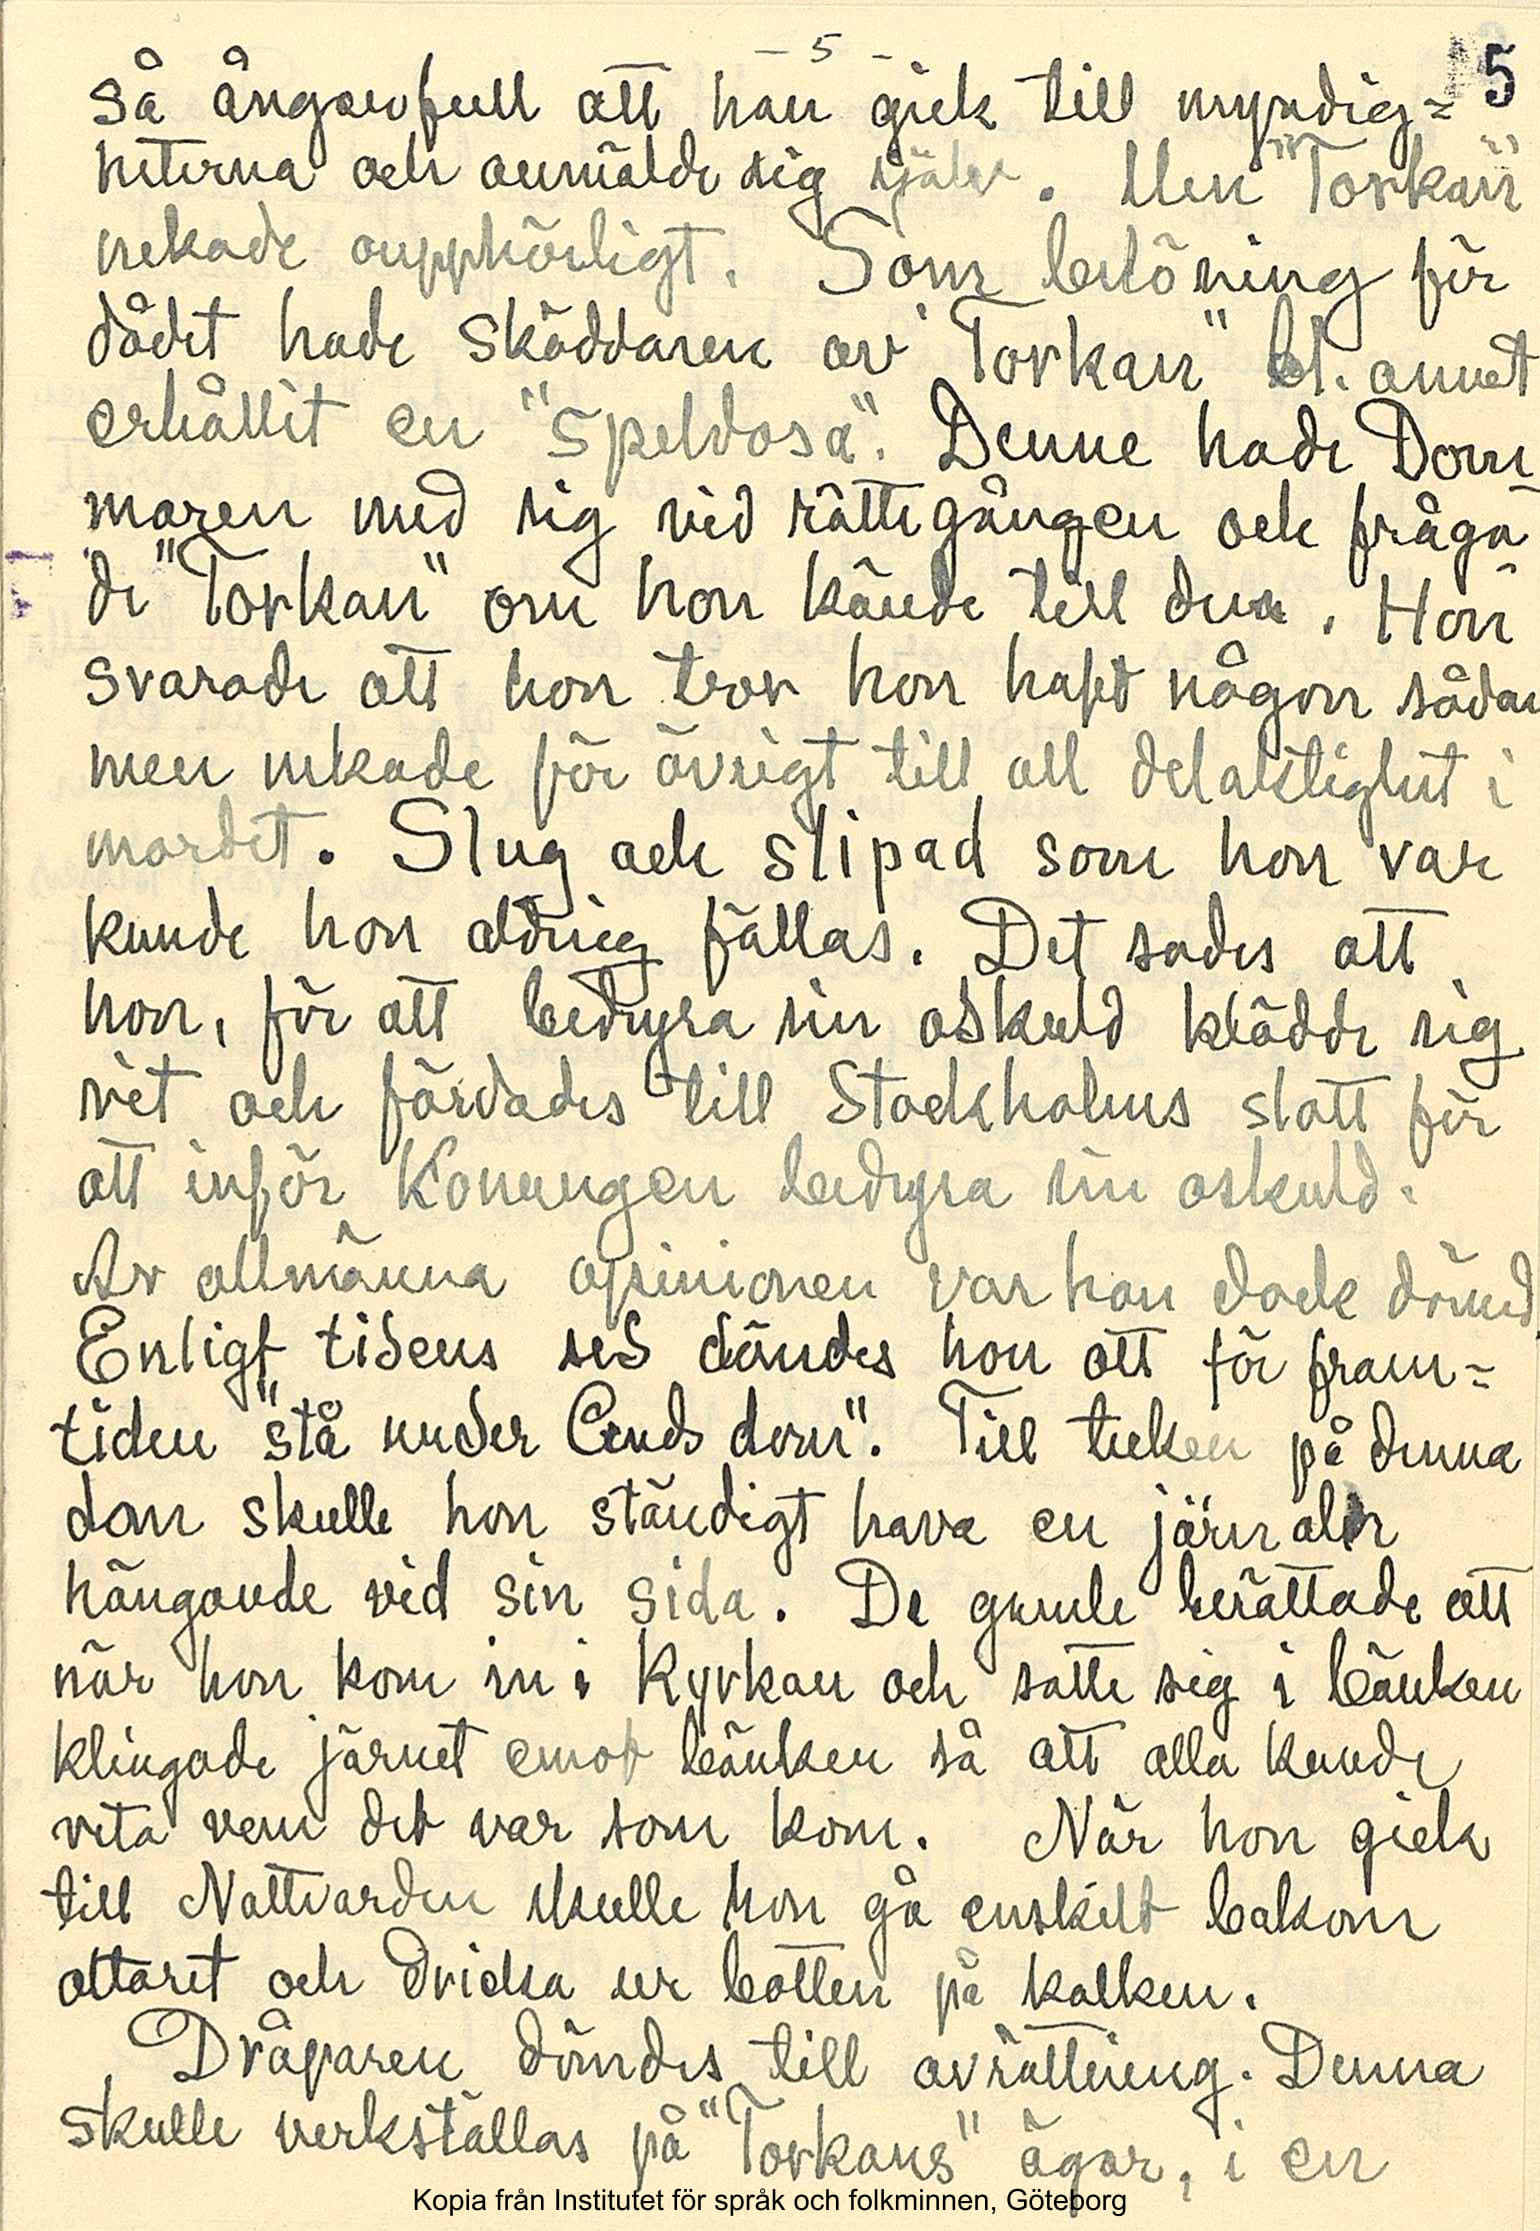 - 5 -
5
så ångerfull att han gick till myndig=
heterna och anmälde sig själv. Men "Torkan"
nekade oupphörligt. Som belöning för
dådet hade skäddaren av "Torkan" bl. annat
erhållit en "Speldosa". Denne hade Dom
maren med sig vid rättegången och fråga
de "Torkan" om hon kände till den. Hon
svarade att hon tror hon haft någon sådan
men nekade för övrigt till all delaktighet i
mordet. Slug och slipad som hon var
kunde hon aldrig fällas. Det sades att
hon, för att bedyra sin oskuld klädde sig
vit och färdades till Stockholms slott för
att inför Konungen bedyra sin oskuld.
Av allmänna opinionen var hon dock dömd
Enligt tidens sed dömdes hon att för fram=
tiden "stå under Guds dom". Till tecken på denna
dom skulle hon ständigt hava en järnalen
hängande vid sin sida. De gamle berättade att
när hon kom in i Kyrkan och satte sig i bänken
klingade järnet emot bänken så att alla kunde
veta vem det var som kom. När hon gick
till Nattvarden skulle hon gå enskilt bakom
altaret och dricka ur botten på kalken.
Dråparen dömdes till avrättning. Denna
skulle verkställas på "Torkans" ägor, i en
Kopia från Institutet för språk och folkminnen, Göteborg